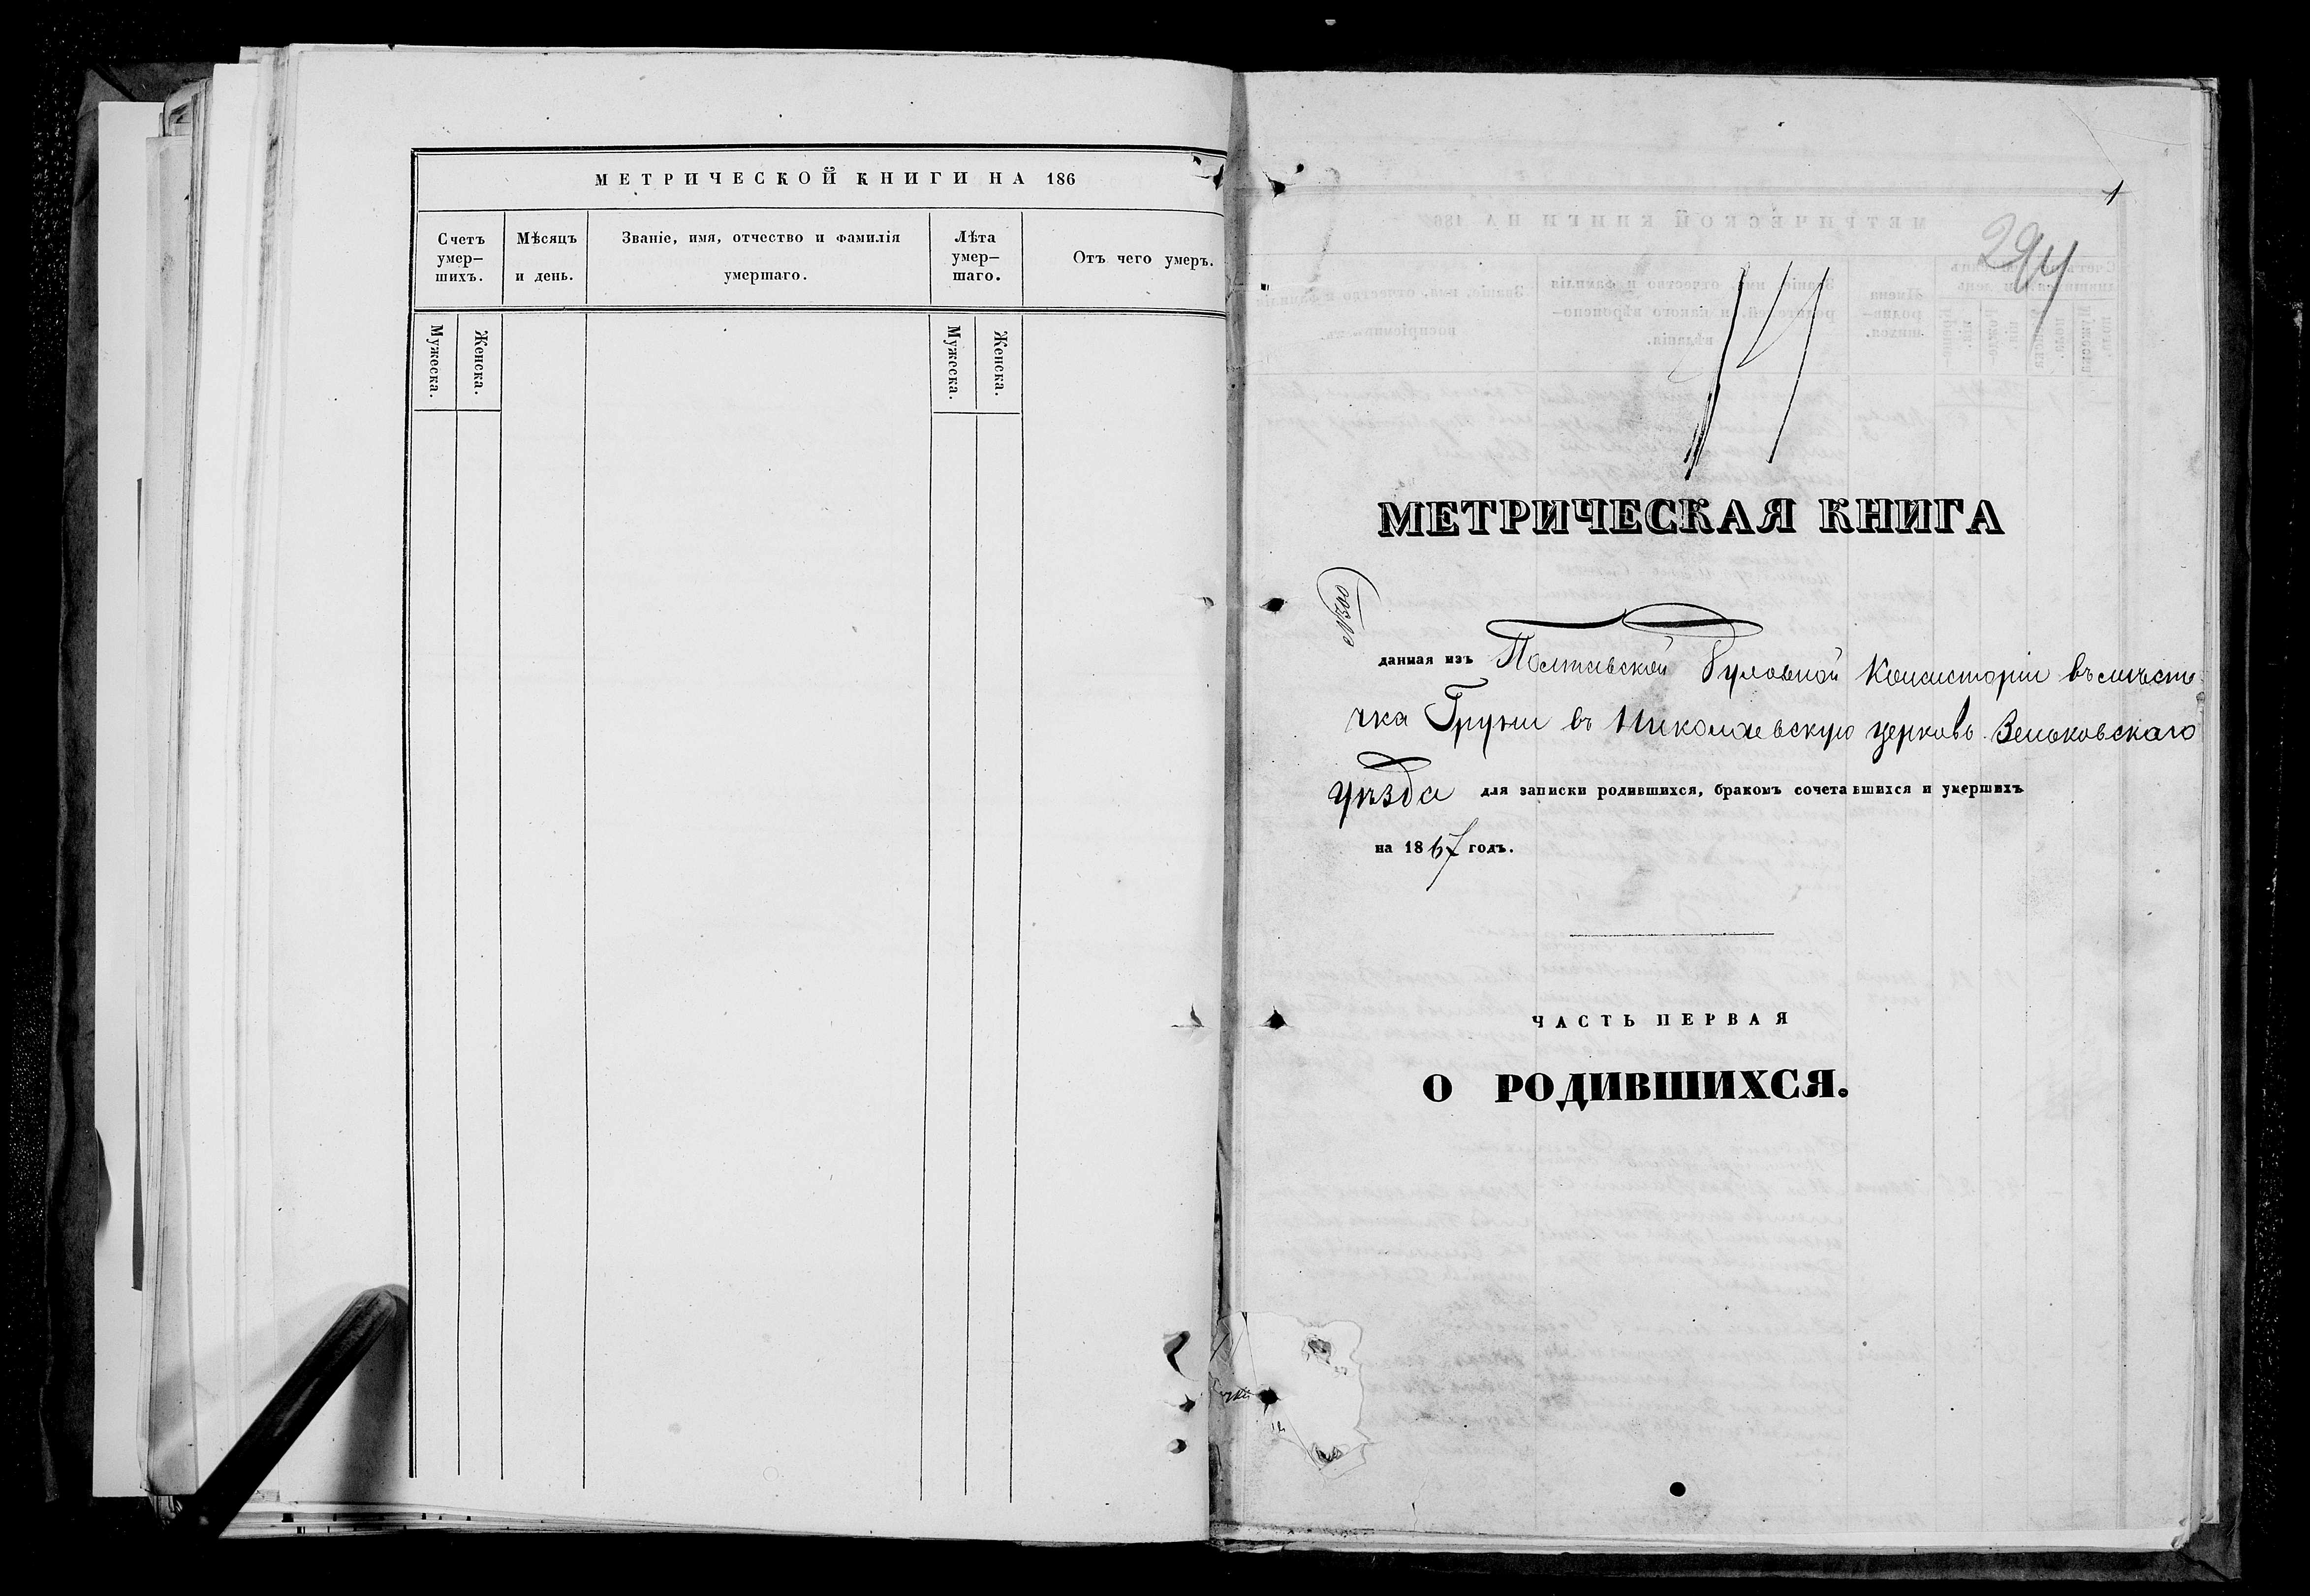 МЕТРИЧЕСКОЙ КНИГИ НА 186
Счетъ умер–шихъ.
Мѣсяцъ и день.
Званіе, имя, отчество и фамилія умершаго.
Лѣта умер–шаго.
Отъ чего умеръ.
Мужеска.
Женска.
Мужеска.
Женска.
1
294
МЕТРИЧЕСКАЯ КНИГА
№300
данная изъ Полтавской Духовной Консисторіи въ мѣсте
чка Груни въ Николаевскую церковь Зеньковскаго
уѣзда для записки родившихся, бракомъ сочетавшихся и умершихъ
на 1867 годъ.
ЧАСТЬ ПЕРВАЯ
О РОДИВШИХСЯ.